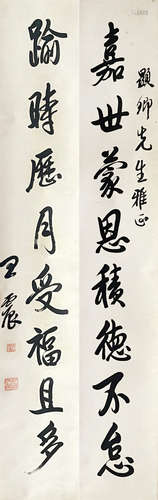 顯卿先生雅正
嘉世蒙恩積德不怠
踰時歷月受福且多
王震